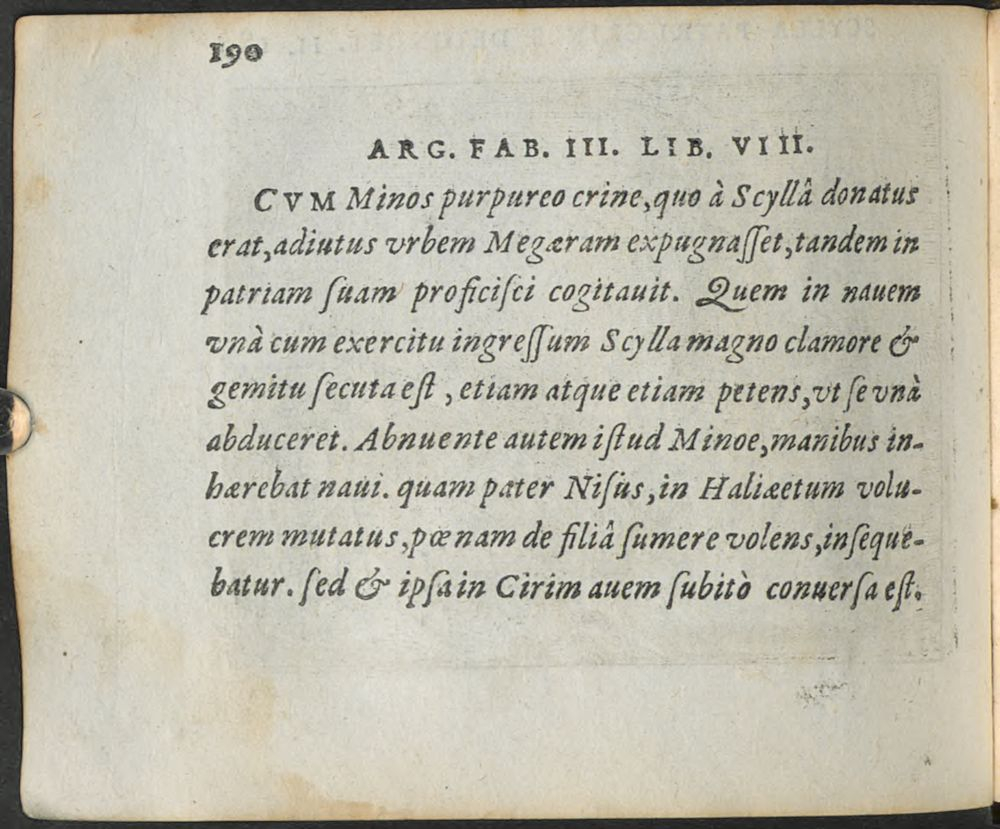 190
ARG. FAB. III. LIB. VIII.
CVM Minos purpureo crine, quo à Scyllâ donatus
erat, adiutus vrbem Megæram expugnaſſet, tandem in
patriam ſuam proficiſci cogitauit. Quem in nauem
vnà cum exercitu ingreſſum Scylla magno clamore &
gemitu ſecuta eſt, etiam atque etiam petens, vt ſe vnà
abduceret. Abnuente autem iſtud Minoe, manibus in-
hærebat naui. quam pater Niſus, in Haliæetum volu-
crem mutatus, pœnam de filiâ ſumere volens, inſeque-
batur. ſed & ipſa in Cirim auem ſubitò conuerſa eſt.